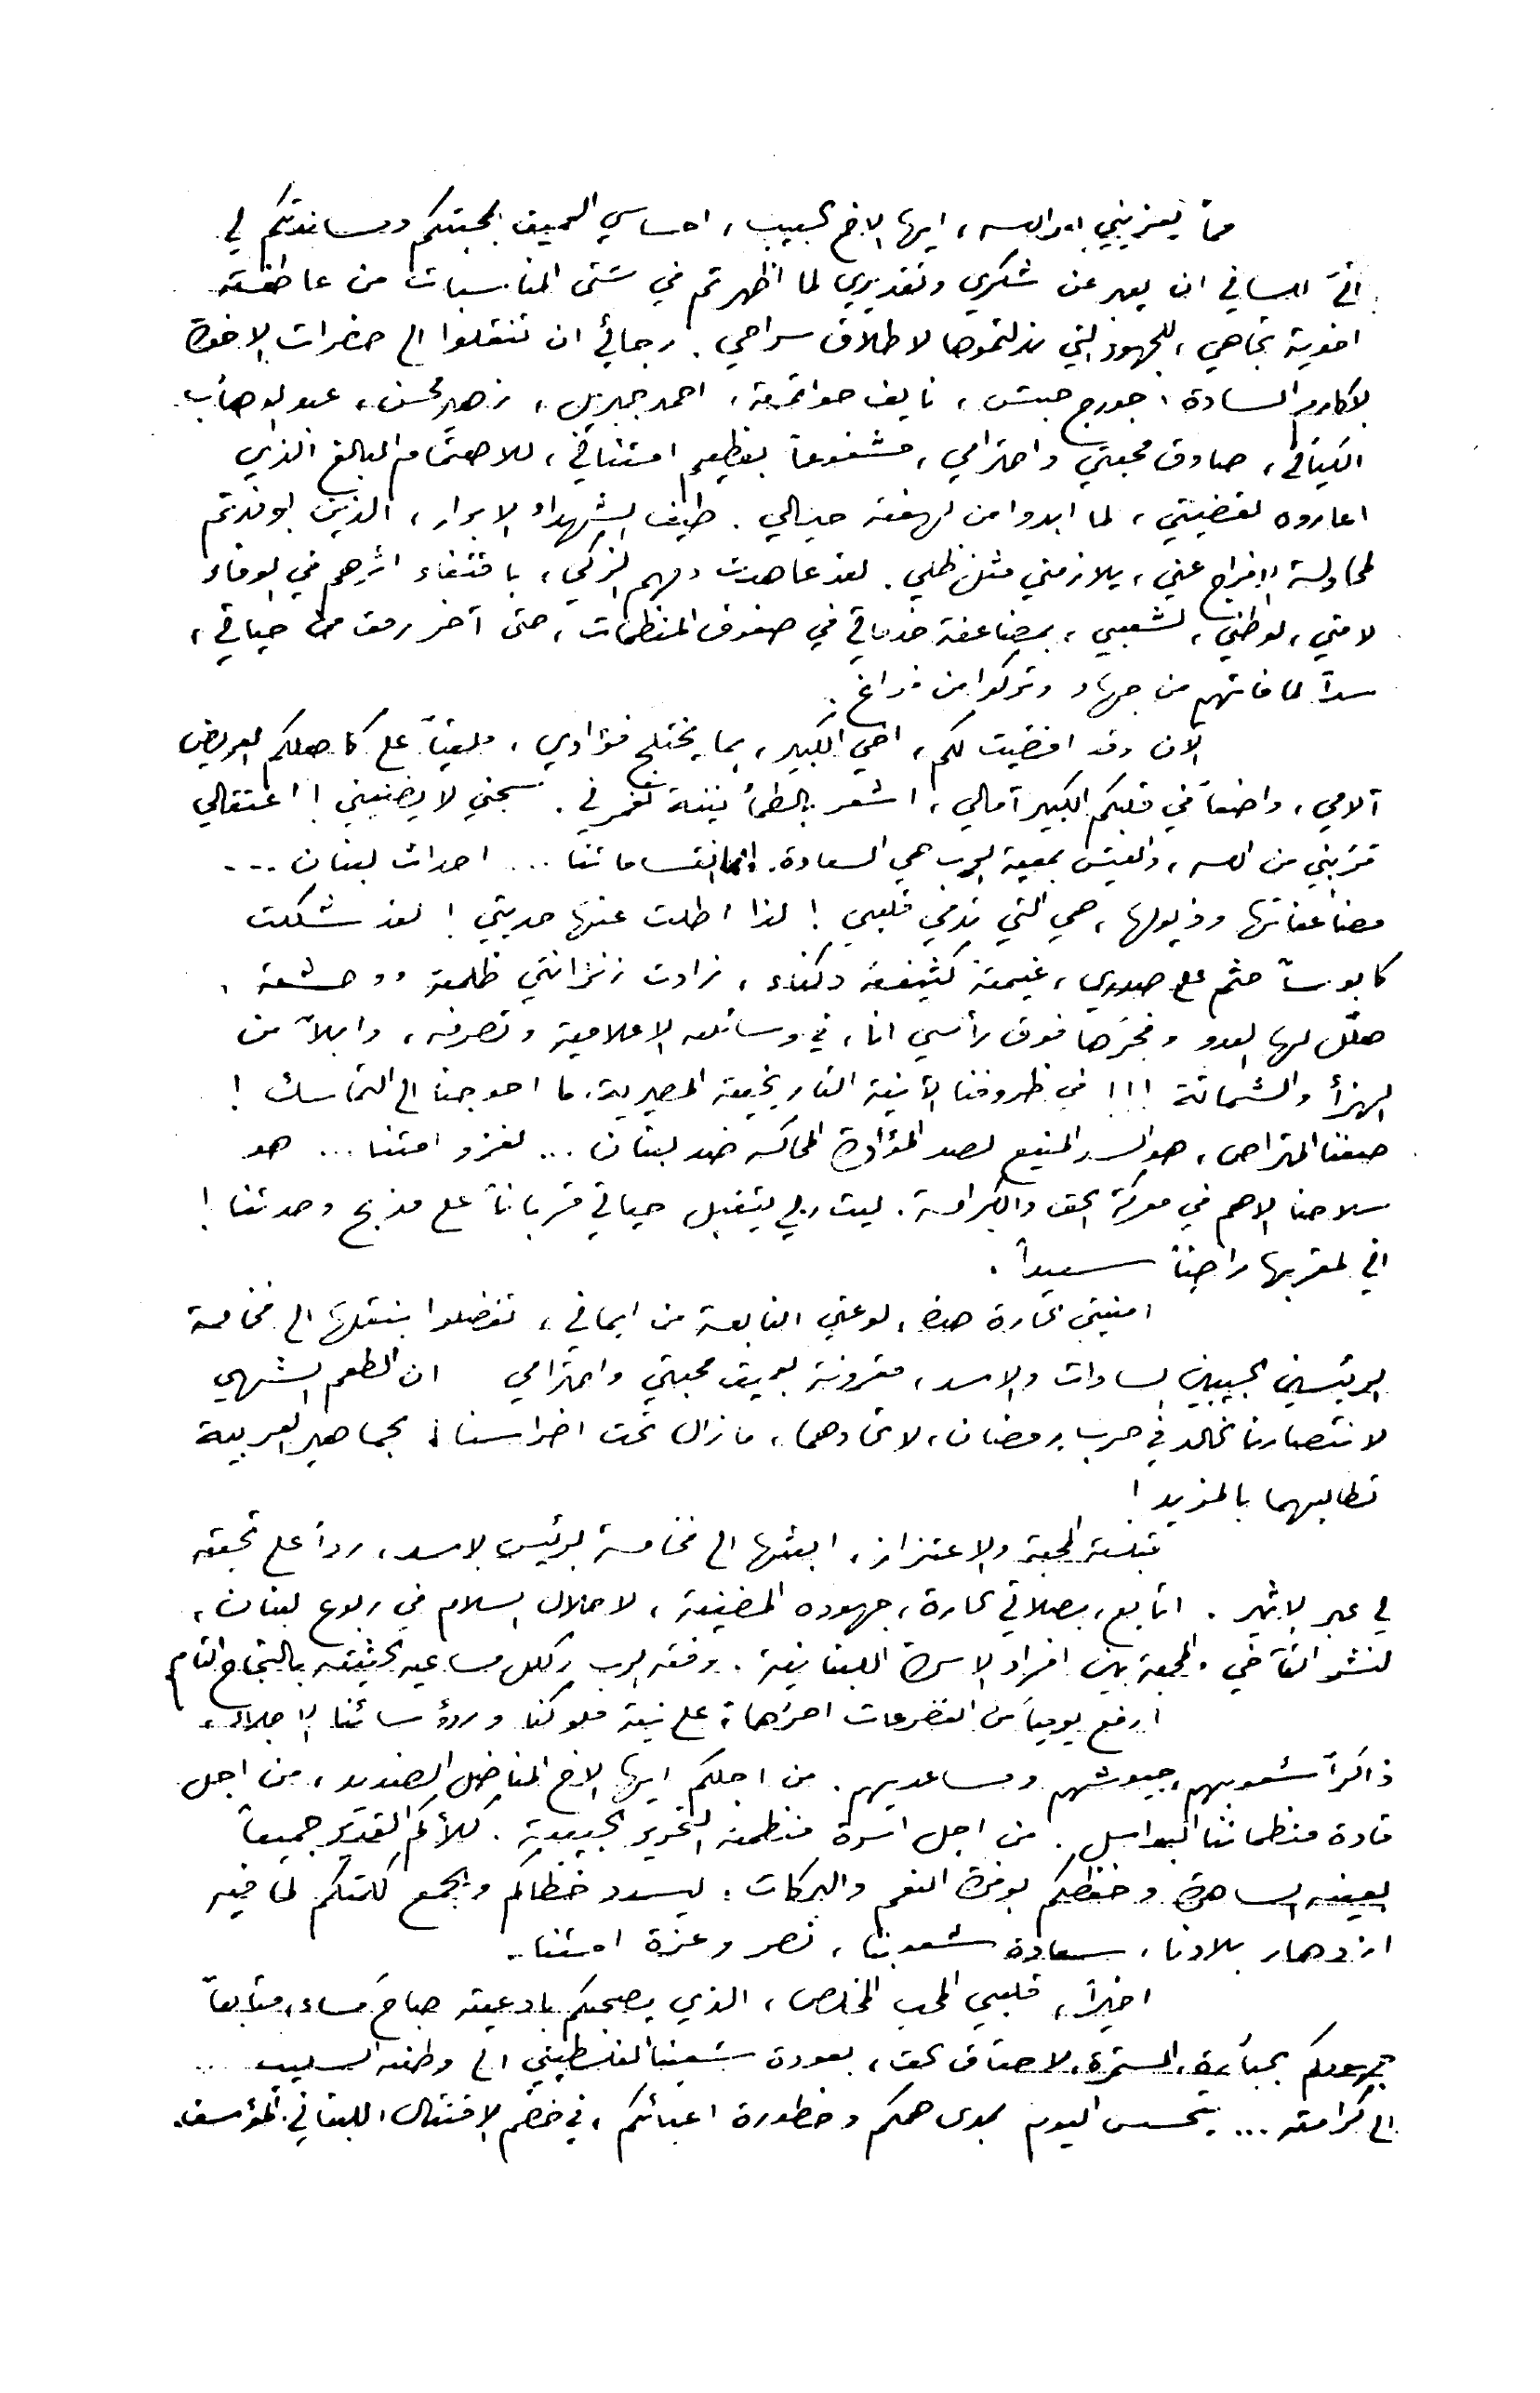 ممّا يعزيني امام الله، ايها الاخ الحبيب، احساسي العميق بمحبتكم ومساندتكم لي
انّى للساني ان يعبر عن شكري وتقديري لما اظهرتم في شتى المناسبات من عاطفة
اخوية تجاهي، للجهود التي بذلتموها لاطلاق سراحي. رجائي ان تنقلوا الى حضرات الاخوة
الاكارم السادة، جورج حبش، نايف حواتمة، احمد جبريل، زهير محسن، عبد الوهاب
الكيالي، صادق محبتي واحترامي، مشفوعاً بعظيم امتناني، للاهتمام البالغ الذي
اعاروه لقضيتي، لما ابدوا من لهفة حيالي. طيف الشهداء الابرار، الذين اوفدتم
لمحاولة الافراج عني، يلازمني مثل ظلي. لقد عاهدت دمهم الزكي، باقتفاء اثرهم في الوفاء
لامتي، لوطني، لشعبي، بمضاعفة خدماتي في صفوف المنظمات، حتى آخر رمق من حياتي،
سداً لما فاتهم من جهاد وتركوا من فراغ.
الآن وقد افضيت لكم، اخي الكبير، بما يختلج فؤادي، ملقياً على كاهلكم العريض
آلامي، واضعاً في قلبكم الكبير آمالي، اشعر بالطمأنينة تغمرني. سجني لا يضنيني! اعتقالي
قرّبني من الله، والعيش بمعية الرب هي السعادة. انما انقساماتنا ... احداث لبنان ...
مضاعفاتها وذيولها، هي التي تدمي قلبي! لذا اطلت عنها حديثي! لقد شكلت
كابوساً جثم على صدري، غيمة كثيفة دكناء، زادت زنزانتي ظلمة ووحشة،
هلّل لها العدو وفجّرها فوق رأسي انا، في وسائله الاعلامية وتصرفه، وابلاً من
الهزأ والشماتة!!! في ظروفنا الآنية التاريخية المصيرية، ما احوجنا الى التماسك!
صفنا المتراص، هو السد المنيع لصد المؤامرة المحاكة ضد لبنان ... لغزو امتنا ... هو
سلاحنا الاهم في معركة الحق والكرامة. ليت ربي يتقبل حياتي قرباناً على مذبح وحدتنا!
اني لمقربها راضياً سعيداً.
امنيتي الحارة هذه، لوعتي النابعة من ايماني، تفضلوا بنقلها الى فخامة
الرئيسين الحبيبين السادات والاسد، مقرونة بعميق محبتي واحترامي ان الطعم الشهي
لانتصارنا الخالد في حرب رمضان، لاتحادهما، ما زال تحت اضراسنا، الجماهير العربية
تطالبهما بالمزيد!
قبلة المحبة والاعتزاز، ابعثها الى فخامة الرئيس الاسد، رداً على تحيته
لي عبر الاثير. اتابع، بصلاتي الحارة، جهوده المضنية، لاحلال السلام في ربوع لبنان،
لنشر التآخي والمحبة بين افراد الاسرة اللبنانية. وفقه الرب وكلل مساعيه الحثيثة بالنجاح التام
ارفع يومياً من التضرعات احرّها، على نية ملوكنا ورؤسائنا الاجلاء،
ذاكراً شعوبهم، جيوشهم ومساعديهم. من اجلكم ايها الاخ المناضل الصنديد، من اجل
قادة منظماتنا البواسل. من اجل اسرة منظمة التحرير الحبيبة. كلأكم القدير جميعاً
بعينه الساهرة وحفظكم بوفرة النعم والبركات، ليسدد خطاكم ويجمع كلمتكم لما فيه
ازدهار بلادنا، سعادة شعوبنا، نصر وعزة امتنا.
اخيراً، قلبي المحب المخلص، الذي يصحبكم بادعيته صباحَ مساء، متابعاً
جهودكم الجبارة، المستمرة، لاحقاق الحق، بعودة شعبنا الفلسطيني الى وطنه السليب ..
الى كرامته ... يتحسس اليوم بمدى همكم وخطورة اعبائكم، في خضم الاقتتال اللبناني المؤسف.